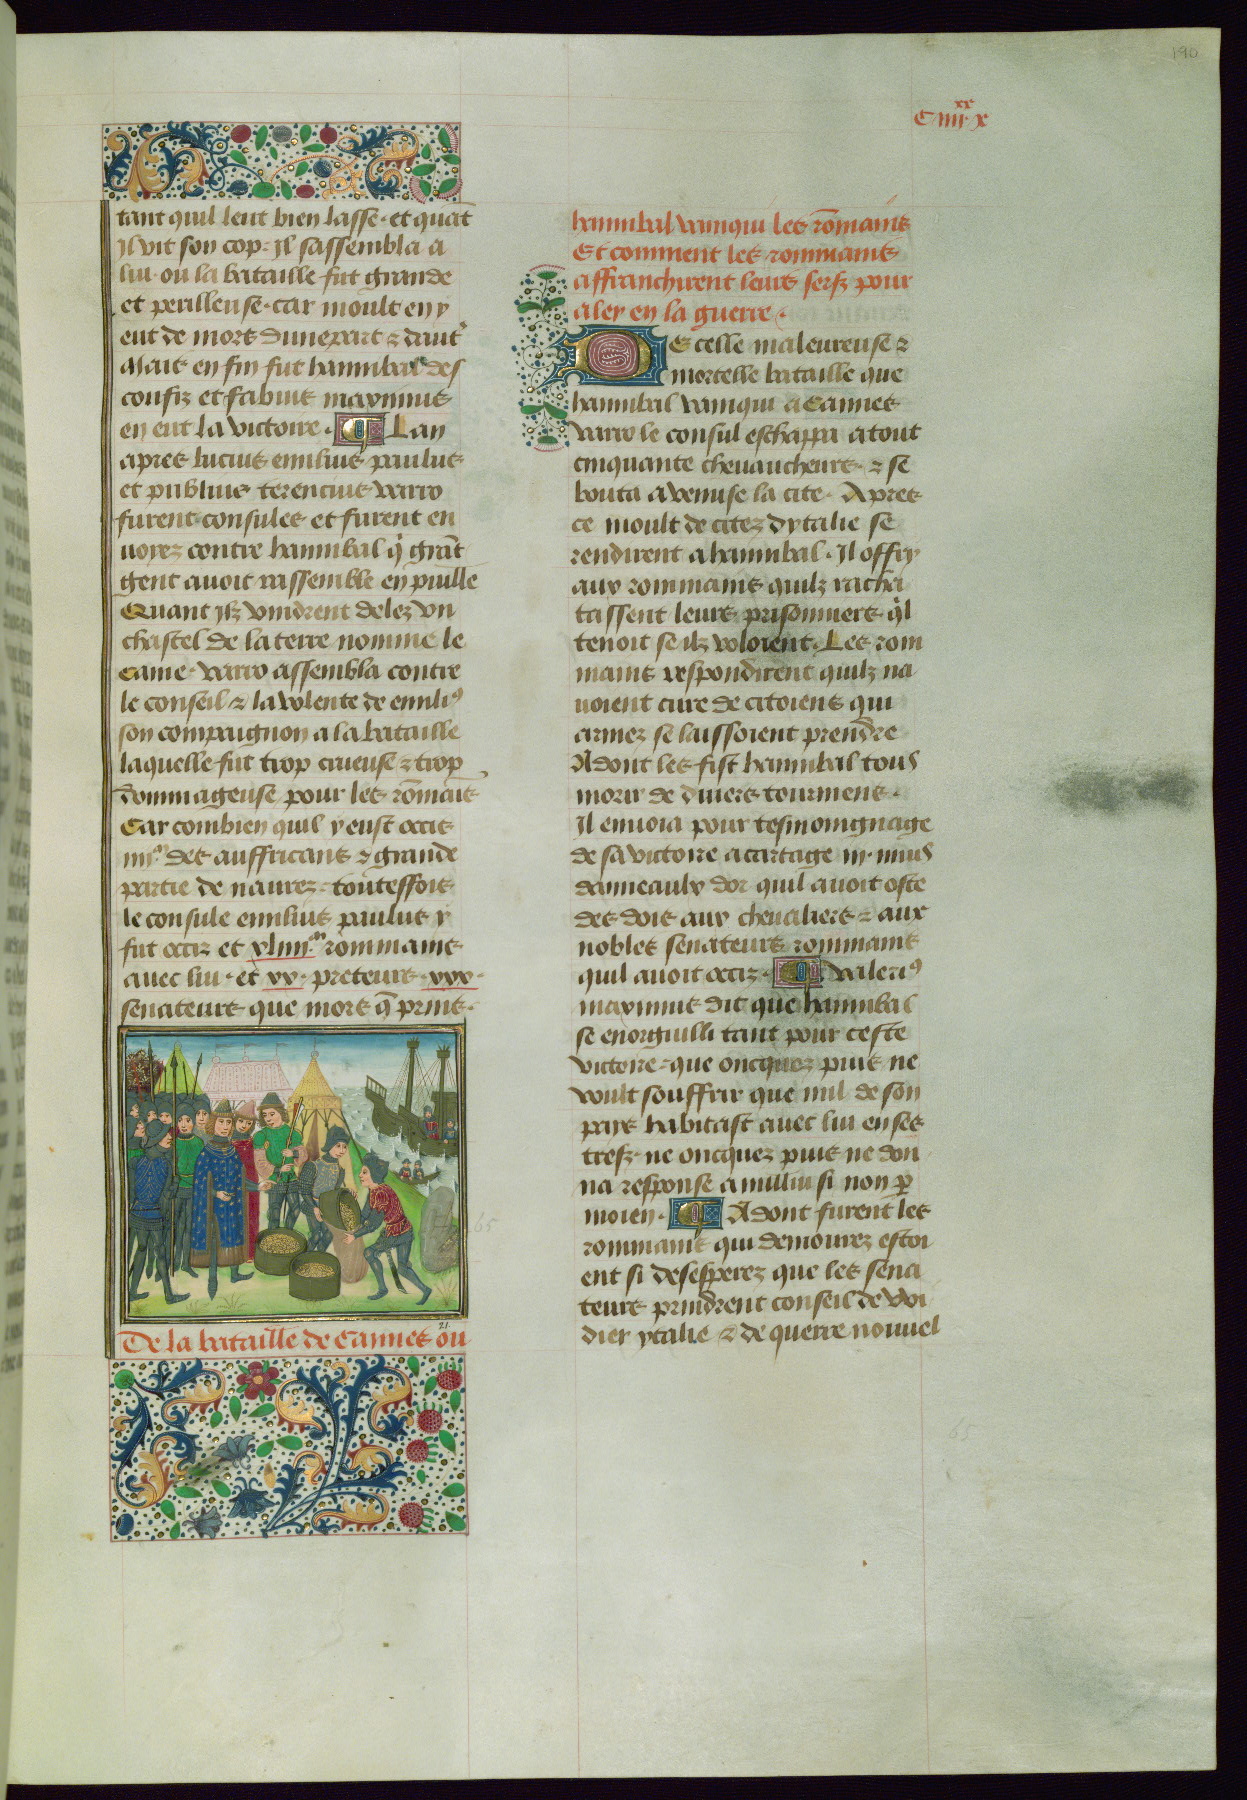 190
C iiii xx x
tant quil leut bien lasse · et quāt
Il vit son cop · Il sassembla a
lui · ou la bataille fut grande
et perilleuse · car moult en y
eut de mors dune part ⁊ daut̛
Mais en fin fut hannibal des
confiz et fabius maximus
en eut la victoire · Lan
apres lucius emilius paulus
et publius terencius varro
furent consules et furent en
uoyez contre hannibal q̇ grāt
gent auoit rassemble en puille
Quant Ilz vindrent delez vn
chastel de la terre nomme le
came · varro assembla contre
le conseil ⁊ la volente de emiliꝰ
son compaignon a la bataille
laquelle fut trop crueuse ⁊ trop
dommageuse pour les rōmaīs
Car combien quil y eust occis
iiii.m des auffricans ⁊ grande
partie de naurez · touteffois
le consule emilius paulus y
fut occiz et xliiii.m rōmmains
auec lui · et xx · preteurs · xxx ·
senateurs que mors q̄ prins ·
21.
De la bataille de Cannes ou
65
hannibal vainqui les rōmains
Et comment les rommains
affranchirent leurs serfz pour
aler en la guerre ·
De celle maleureuse ⁊
mortelle bataille que
hannibal vainqui a Cannes
varro le consul eschappa a tout
cinquante cheuaucheurs · ⁊ se
bouta a venuse la cite · Apres
ce moult de citez dytalie se
rendirent a hannibal · Il offry
aux rommains quilz racha
tassent leurs prisonniers q̇l
tenoit se ilz voloient · Les rom
mains respondirent quilz na
uoient cure de citoiens qui
armez se laissoient prendre
Adont les fist hannibal tous
morir de diuers tourmens ·
Il enuoia pour tesmoingnage
de sa victoire a cartage iii · muis
danneaulx dor quil auoit oste
des dois aux cheualiers ⁊ aux
nobles senateurs rommains
quil auoit occiz · valeriꝰ
maximus dit que hannibal
se enorguilli tant pour ceste
victoire · que oncquez puis ne
voult souffrir que nul de son
pays habitast auec lui en ses
trefz · ne oncquez puis ne don
na response a nullui si non ꝑ
moien · Adont furent les
rommains qui demourez estoi
ent si desesperez que les sena
teurs prindrent conseil de voi
dier ytalie ⁊ de querre nouuel
65